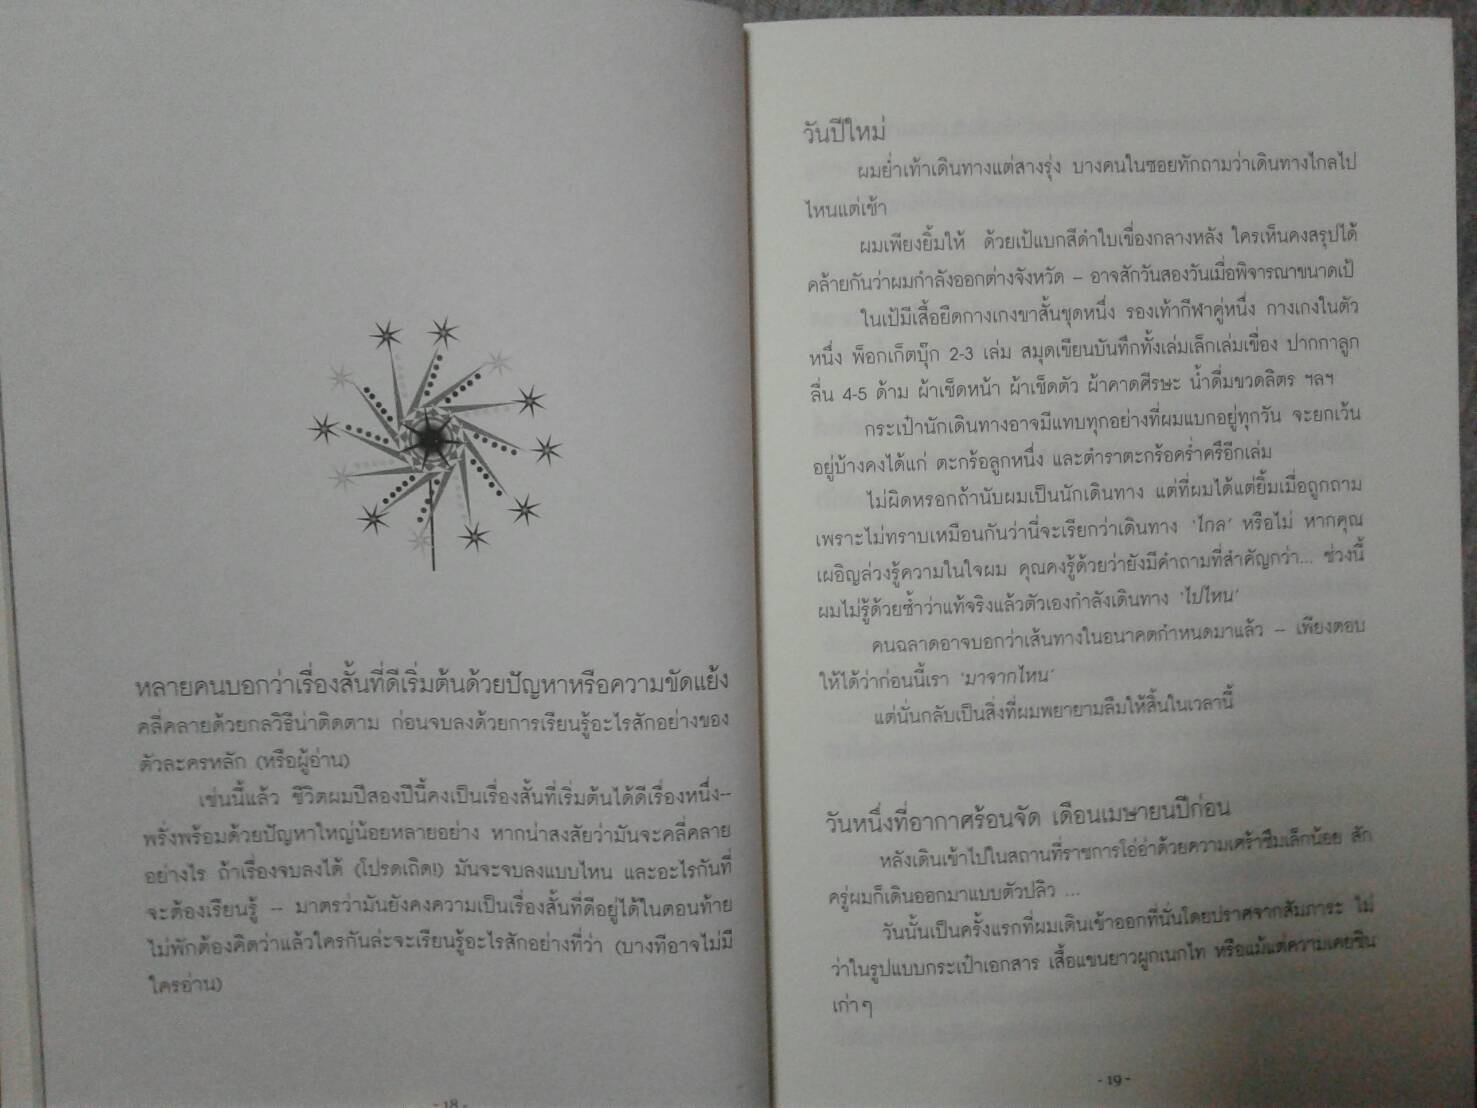 หลายคนบอกว่าเรื่องสั้นที่ดีเริ่มต้นด้วยปัญหาหรือความขัดแย้ง
คลี่คลายด้วยกลวิธีน่าติดตาม ก่อนจบลงด้วยการเรียนรู้อะไรสักอย่างของ
ตัวละครหลัก (หรือผู้อ่าน)
เช่นนี้แล้ว ชีวิตผมปีสองปีนี้คงเป็นเรื่องสั้นที่เริ่มต้นได้ดีเรื่องหนึ่ง--
พรั่งพร้อมด้วยปัญหาใหญ่น้อยหลายอย่าง หากน่าสงสัยว่ามันจะคลี่คลาย
อย่างไร ถ้าเรื่องจบลงได้ (โปรดเถิด!) มันจะจบลงแบบไหน และอะไรกันที่
จะต้องเรียนรู้ -- มาตรว่ามันยังคงความเป็นเรื่องสั้นที่ดีอยู่ได้ในตอนท้าย
ไม่พักต้องคิดว่าแล้วใครกันล่ะจะเรียนรู้อะไรสักอย่างที่ว่า (บางทีอาจไม่มี
ใครอ่าน)
- 18 -
วันปีใหม่
ผมย่ำเท้าเดินทางแต่สางรุ่ง บางคนในซอยทักถามว่าเดินทางไกลไป
ไหนแต่เช้า
ผมเพียงยิ้มให้ ด้วยเป้แบกสีดำใบเขื่องกลางหลัง ใครเห็นคงสรุปได้
คล้ายกันว่าผมกำลังออกต่างจังหวัด – อาจสักวันสองวันเมื่อพิจารณาขนาดเป้
ในเป้มีเสื้อยืดกางเกงขาสั้นชุดหนึ่ง รองเท้ากีฬาคู่หนึ่ง กางเกงในตัว
หนึ่ง พ็อกเก็ตบุ๊ก 2-3 เล่ม สมุดเขียนบันทึกทั้งเล่มเล็กเล่มเขื่อง ปากกาลูก
ลื่น 4-5 ด้าม ผ้าเช็ดหน้า ผ้าเช็ดตัว ผ้าคาดศีรษะ น้ำดื่มขวดลิตร ฯลฯ
กระเป๋านักเดินทางอาจมีแทบทุกอย่างที่ผมแบกอยู่ทุกวัน จะยกเว้น
อยู่บ้างคงได้แก่ ตะกร้อลูกหนึ่ง และตำราตะกร้อคร่ำครึอีกเล่ม
ไม่ผิดหรอกถ้านับผมเป็นนักเดินทาง แต่ที่ผมได้แต่ยิ้มเมื่อถูกถาม
เพราะไม่ทราบเหมือนกันว่านี่จะเรียกว่าเดินทาง ‘ไกล’ หรือไม่ หากคุณ
เผอิญล่วงรู้ความในใจผม คุณคงรู้ด้วยว่ายังมีคำถามที่สำคัญกว่า... ช่วงนี้
ผมไม่รู้ด้วยซ้ำว่าแท้จริงแล้วตัวเองกำลังเดินทาง ‘ไปไหน’
คนฉลาดอาจบอกว่าเส้นทางในอนาคตกำหนดมาแล้ว – เพียงตอบ
ให้ได้ว่าก่อนนี้เรา ‘มาจากไหน’
แต่นั่นกลับเป็นสิ่งที่ผมพยายามลืมให้สิ้นในเวลานี้
วันหนึ่งที่อากาศร้อนจัด เดือนเมษายนปีก่อน
หลังเดินเข้าไปในสถานที่ราชการโอ่อ่าด้วยความเศร้าซึมเล็กน้อย สัก
ครู่ผมก็เดินออกมาแบบตัวปลิว ...
วันนั้นเป็นครั้งแรกที่ผมเดินเข้าออกที่นั่นโดยปราศจากสัมภาระ ไม่
ว่าในรูปแบบกระเป๋าเอกสาร เสื้อแขนยาวผูกเนกไท หรือแม้แต่ความเคยชิน
เก่าๆ
- 19 -